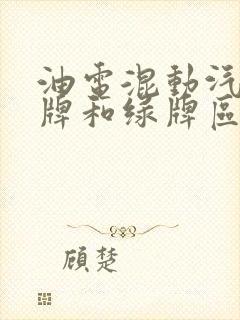 油電混動汽
牌和绿牌區
顧楚